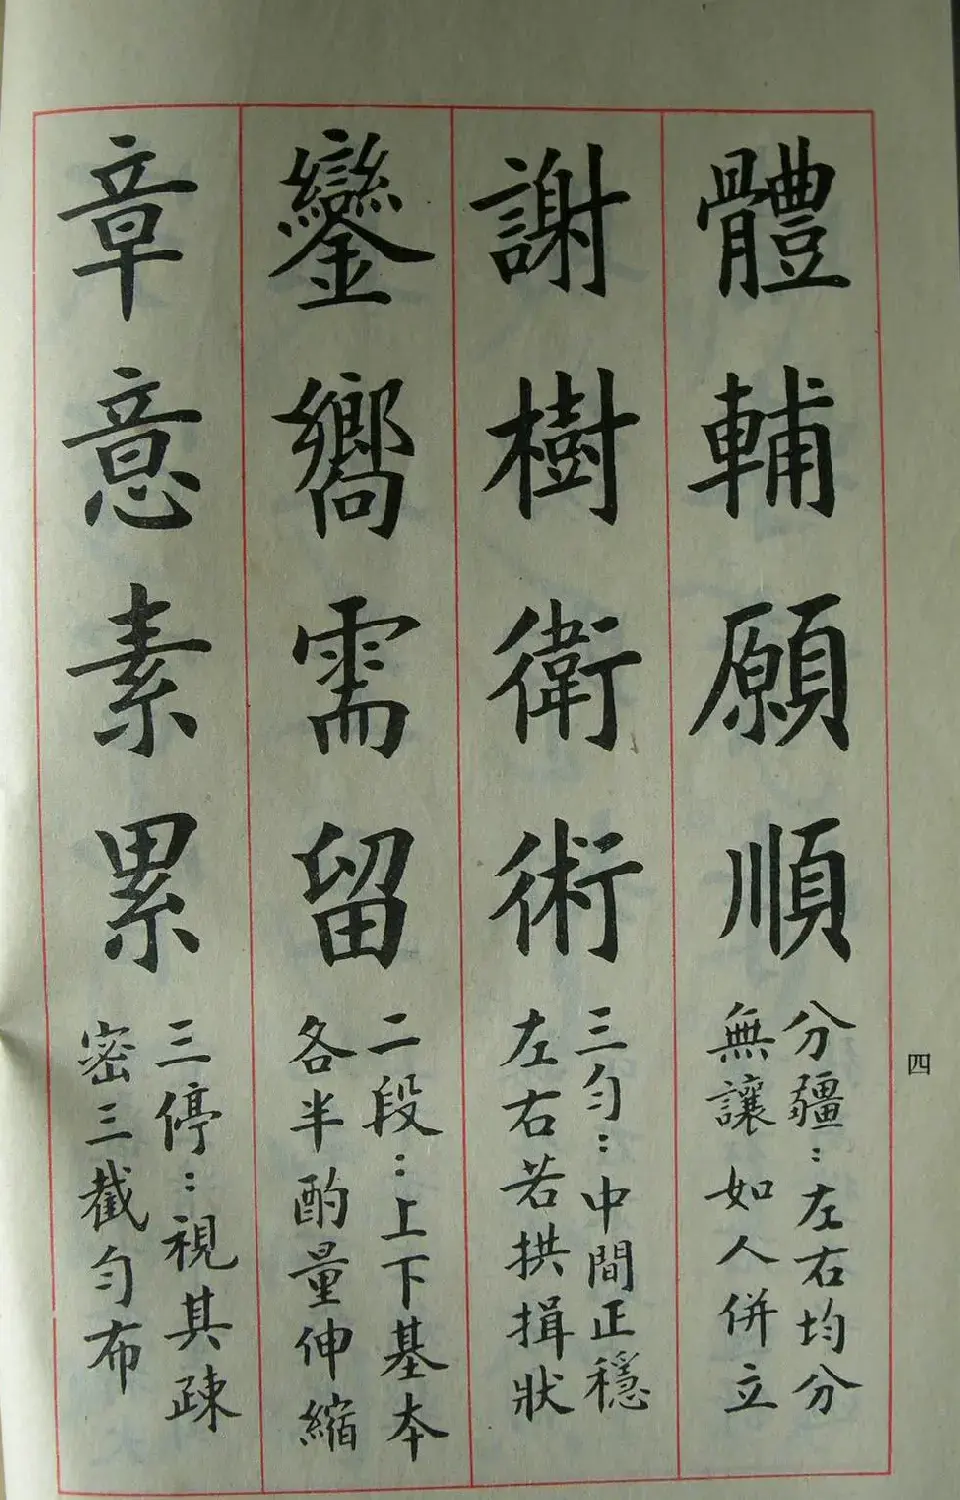 體輔願順
分疆：左右均分
無讓如人併立
謝樹衛術
三勻：中間正穩
左右若拱揖狀
鑾嚮需留
二段：上下基本
各半酌量伸縮
章意素累
三停：視其疎
密三截勻布
四